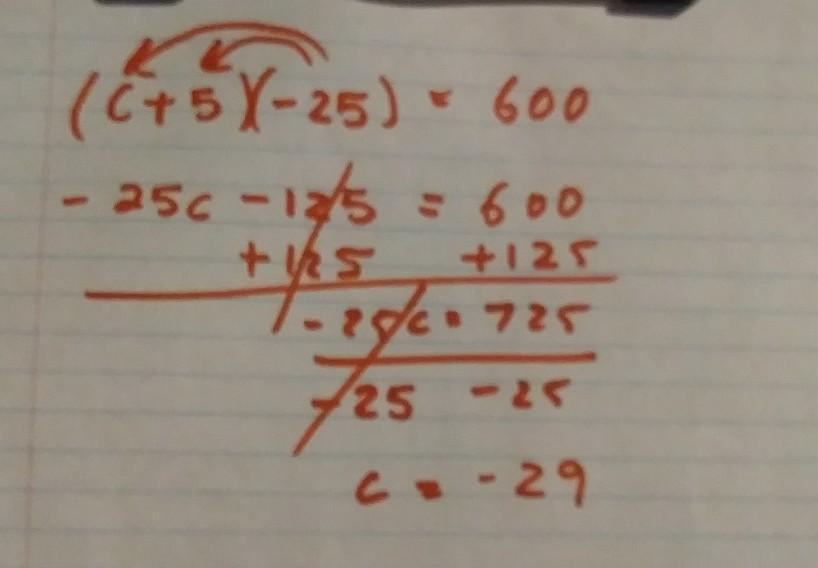 (c+5)(-25) = 600
- 25c - 125 = 600
+125 +125
- 25c = 725
-25 -25
c = -29